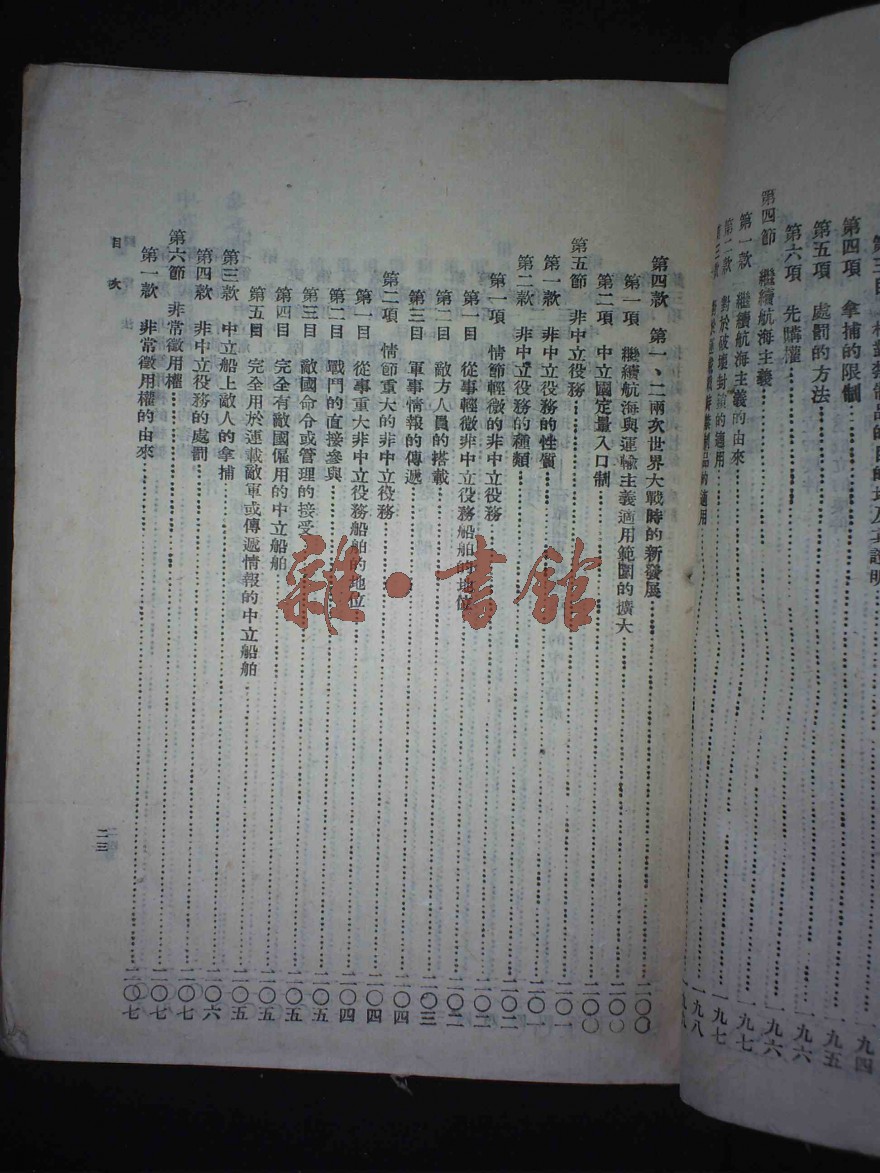 第四項　拿捕的限制……一九四
第五項　處罰的方法……一九五
第六項　先購權……一九六
第四節　繼續航海主義……一九六
第一款　繼續航海主義的由來……一九七
第二款　對於破壞封鎖的適用……一九七
第四款　第一、二兩次世界大戰時的新發展……二〇〇
第一項　繼續航海與運輸主義適用範圍的擴大……二〇〇
第二項　中立國定量入口制……二〇〇
第五節　非中立役務……二〇一
第一款　非中立役務的性質……二〇一
第二款　非中立役務的種類……二〇二
第一項　情節輕微的非中立役務……二〇二
第一目　從事輕微非中立役務船舶的地位……二〇二
第二目　敵方人員的搭載……二〇三
第三目　軍事情報的傳遞……二〇四
第二項　情節重大的非中立役務……二〇四
第一目　從事重大非中立役務船舶的地位……二〇四
第二目　戰鬥的直接參與……二〇五
第三目　敵國命令或管理的接受……二〇五
第四目　完全有敵國僱用的中立船舶……二〇五
第五目　完全用於運載敵軍或傳遞情報的中立船舶……二〇五
第三款　中立船上敵人的拿捕……二〇六
第四款　非中立役務的處罰……二〇七
第六節　非常徵用權……二〇七
第一款　非常徵用權的由來……二〇七
目次
二三
雜·書館